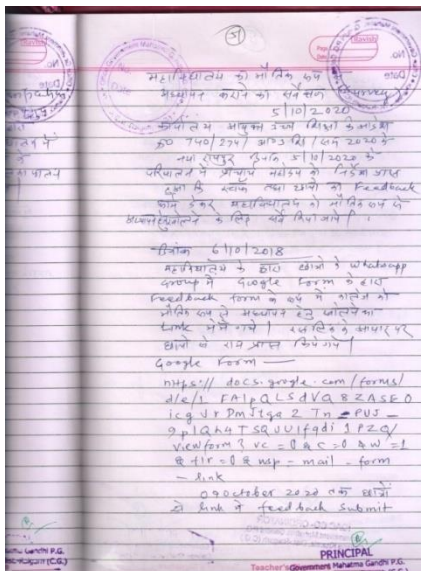 51
महाविद्यालय को भौतिक रूप
अध्यापन कराने का सर्वेक्षण (Survey)
5/10/2020
कार्यालय आयुक्त उच्च शिक्षा के आदेश
क्र0 740/274/ आउशि / सम 2020 के
नया रायपुर दिनांक 5/10/2020 के
परिपालन में प्राचार्य महोदय को निर्देश प्राप्त
हुआ कि स्टॉफ तथा छात्रों को Feedback
फार्म देकर महाविद्यालय को भौतिक रूप से
खोलने के लिए सर्वे किया जावे ।
दिनांक 6/10/2018
महाविद्यालय के द्वारा छात्रों को Whatsapp
Group में Google Form के द्वारा
Feedback form के रूप में कालेज को
भौतिक रूप से अध्यापन हेतु खोलने का
Link भेजे गये । इस लिंक के आधार पर
छात्रों के राय प्राप्त किये गये ।
Google Form —
https:// docs.google.com/forms/
d/e/1 FAIpQLSdVQ8ZASEO
icgVrDmJtga2Tn-PUJ-
9plQh4TSQUUIfqdi1PZQ/
viewform?vc=0&c=0&w=1
&flr=0&usp=mail-form
-link
09 October 2020 तक छात्रों
से link में feedback submit
PRINCIPAL
Government Mahatma Gandhi P.G.
Teacher's
Gandhi P.G.
(C.G.)